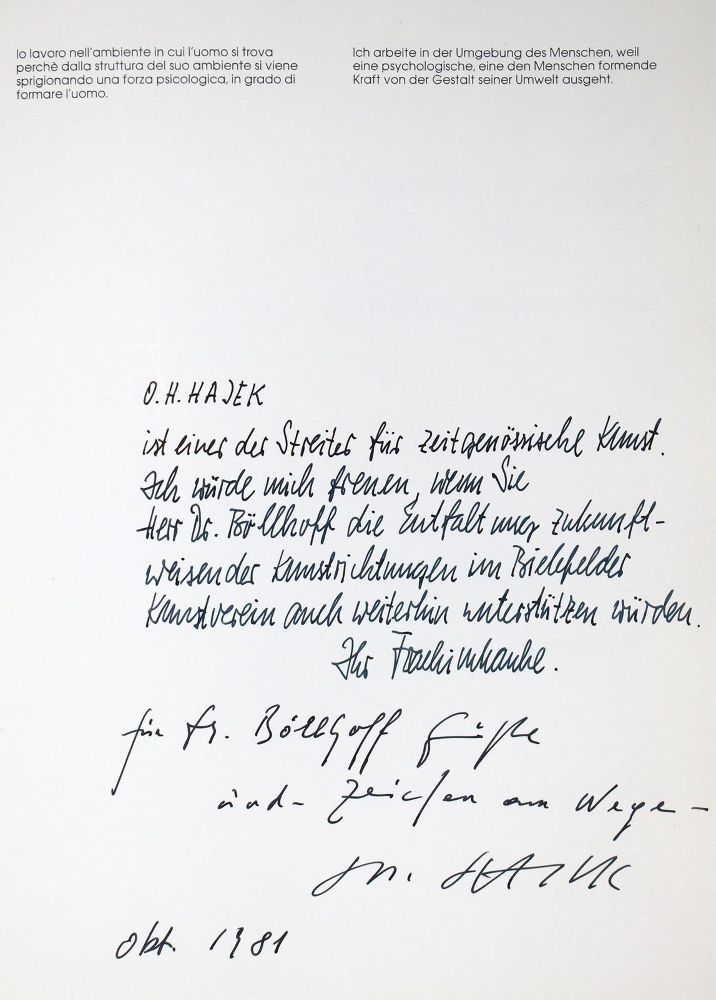 Io lavoro nell'ambiente in cui l'uomo si trova
perchè dalla struttura del suo ambiente si viene
sprigionando una forza psicologica, in grado di
formare l'uomo.
Ich arbeite in der Umgebung des Menschen, weil
eine psychologische, eine den Menschen formende
Kraft von der Gestalt seiner Umwelt ausgeht.
O.H.HAJEK
ist einer der Streiter für zeitgenössische Kunst.
Ich würde mich freuen, wenn Sie
Herr Dr. Böllhoff die Entfaltung zukunft-
weisender Kunstrichtungen im Bielefelder
Kunstverein auch weiterhin unterstützen würden.
Ihr
für Dr. Böllhoff Grüße
und - Zeichen am Wege -
HAJEK
Okt. 1981